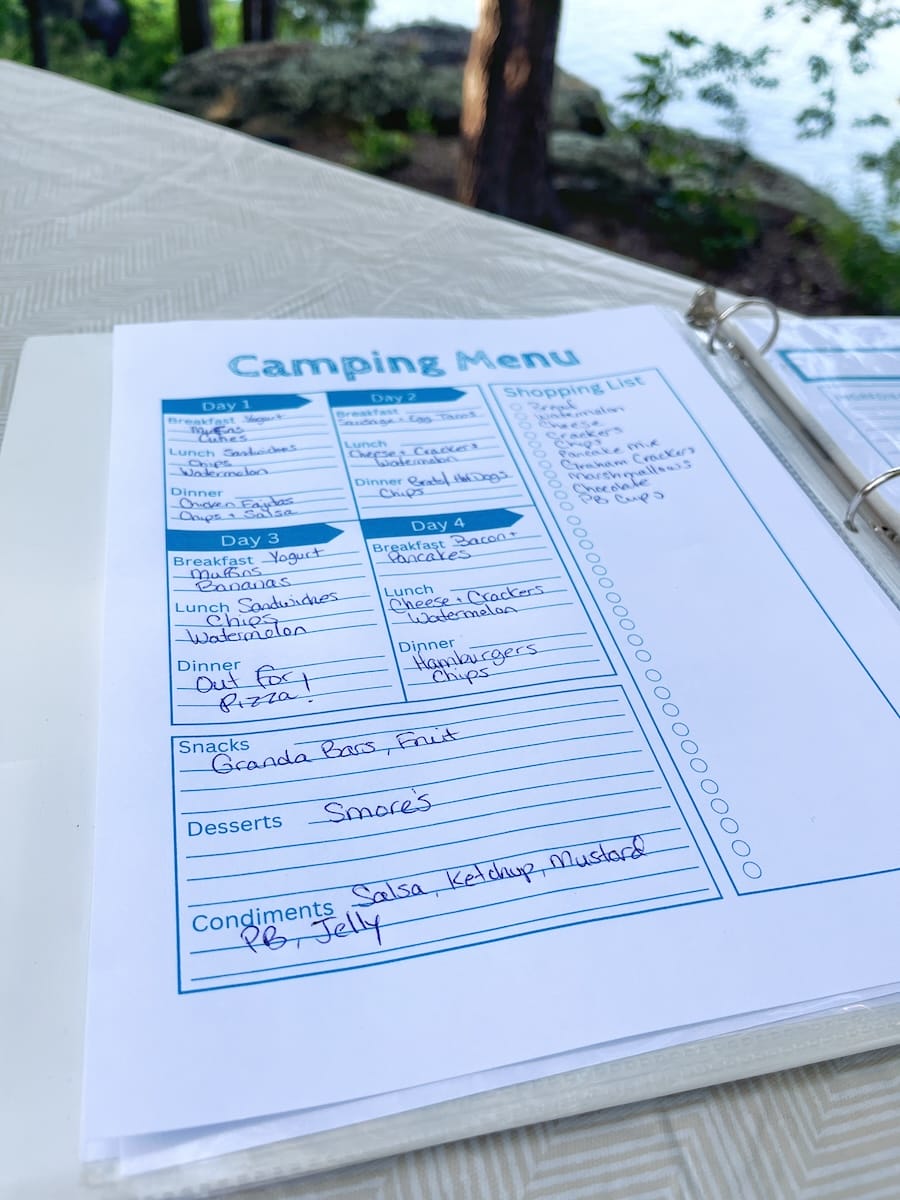 Camping Menu
Day 1
Breakfast Yogurt
Muffins
Cuties
Lunch Sandwiches
Chips
Watermelon
Dinner
Chicken Fajitas
Chips + Salsa
Day 2
Breakfast
Sausage + Egg Tacos
Lunch
Cheese + Crackers
Watermelon
Dinner Brats/ Hot Dogs
Chips
Day 3
Breakfast Yogurt
Muffins
Bananas
Lunch Sandwiches
Chips
Watermelon
Dinner
Out for
Pizza!
Day 4
Breakfast Bacon +
Pancakes
Lunch
Cheese + Crackers
Watermelon
Dinner
Hamburgers
Chips
Snacks
Granola Bars, Fruit
Desserts Smore's
Condiments Salsa, Ketchup, Mustard
PB, Jelly
Shopping List
Bread
Watermelon
Cheese
Crackers
Chips
Pancake mix
Graham Crackers
Marshmallows
Chocolate
PB Cups